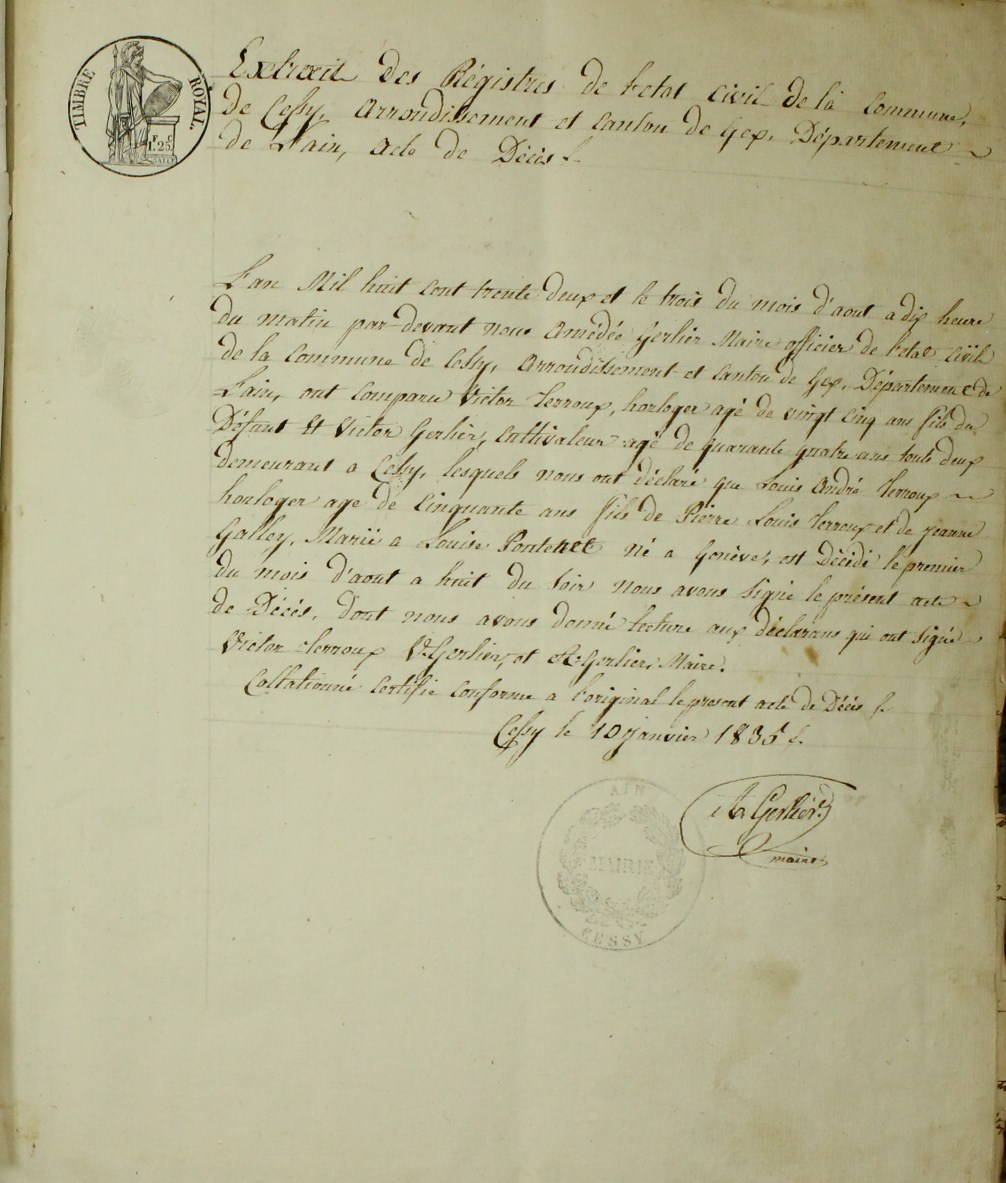 TIMBRE ROYAL.
F. C.
1.25
Extrait des Régistres de l'etat civil de là Commune,
de Cessy, Arrondissement et Canton de Gex, Département
de L'ain, Acte de Décès
L'an Mil huit cent trente deux et le trois du mois d'aout a dix heure
du matin par devant nous Amédée Gerlier Maire officier de l'etat civile
de la Commune de Cessy, Arrondissement et Canton de Gex, Département de
L'ain, ont comparu Victor Terroux, horloger agé de vingt cinq ans fils du
Défunt et Victor Gerlier, Cultivateur agé de quarante quatre ans touts deux
demeurant a Cessy, lesquels nous ont déclaré que Louis André Terroux
horloger age de Cinquante ans fils de Pierre Louis Terroux et de Jeanne
Galley, Marié a Louise Pontenet né a Genève, est Décédé le premier
du mois d'aout a huit du soir nous avons signé le présent acte
de Décès, dont nous avons donné lecture aux déclarans qui ont signé
Victor Terroux V. Gerlier, et A. Gerlier, Maire.
Collationné certifié conforme a l'original le present acte de Décès
Cessy le 10 janvier 1835
A. Gerlier
maire
AIN
MAIRIE
CESSY